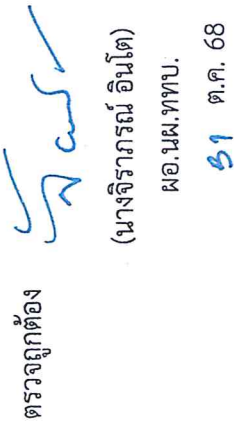 ตรวจถูกต้อง
(นางจิราภรณ์ อินโต)
ผอ.นผ.ททบ.
31 ต.ค. 68